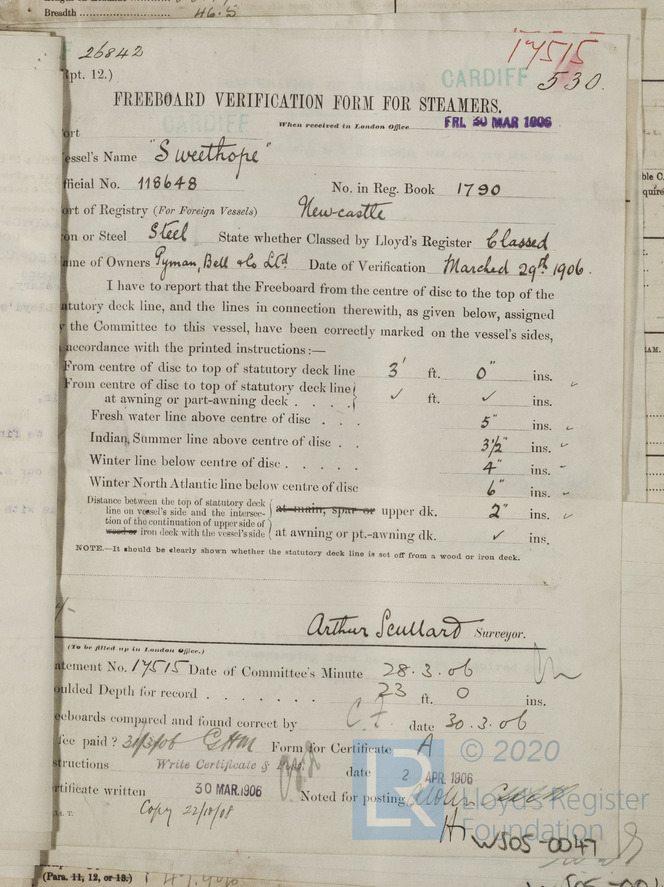 Breadth ........ 46.5
26842
17515
pt. 12.)
CARDIFF
530.
FREEBOARD VERIFICATION FORM FOR STEAMERS.
CARDIFF
When received in London Office FRI. 30 MAR 1906
ort
essel's Name "Sweethope"
fficial No. 118648 No. in Reg. Book 1790
ort of Registry (For Foreign Vessels) Newcastle
on or Steel Steel State whether Classed by Lloyd's Register Classed
ame of Owners Pyman, Bell & Co Ltd Date of Verification Marched 29th 1906.
I have to report that the Freeboard from the centre of disc to the top of the
atutory deck line, and the lines in connection therewith, as given below, assigned
y the Committee to this vessel, have been correctly marked on the vessel's sides,
accordance with the printed instructions:—
From centre of disc to top of statutory deck line 3' ft. 0" ins. ✓
From centre of disc to top of statutory deck line
at awning or part-awning deck . . . . ✓ ft. ✓ ins.
Fresh water line above centre of disc . . . 5" ins. ✓
Indian Summer line above centre of disc . . 3½" ins. ✓
Winter line below centre of disc . . . . . 4" ins. ✓
Winter North Atlantic line below centre of disc 6" ins. ✓
Distance between the top of statutory deck
line on vessel's side and the intersec-
tion of the continuation of upper side of
wood or iron deck with the vessel's side
at main, spar or upper dk. 2" ins. ✓
at awning or pt.-awning dk. ✓ ins.
NOTE.—It should be clearly shown whether the statutory deck line is set off from a wood or iron deck.
Arthur Scullard Surveyor.
(To be filled up in London Office.)
atement No. 17515 Date of Committee's Minute 28.3.06
oulded Depth for record . . . . . . . 23 ft. 0 ins.
eeboards compared and found correct by C.F. date 30.3.06
fee paid? 31/3/06 Form for Certificate A
structions Write Certificate & date 2 APR. 1906
rtificate written 30 MAR.1906 Noted for posting
Copy 22/10/08
LR
© 2020
Lloyd's Register
Foundation
W505-0047
(Para. 11, 12, or 13.)